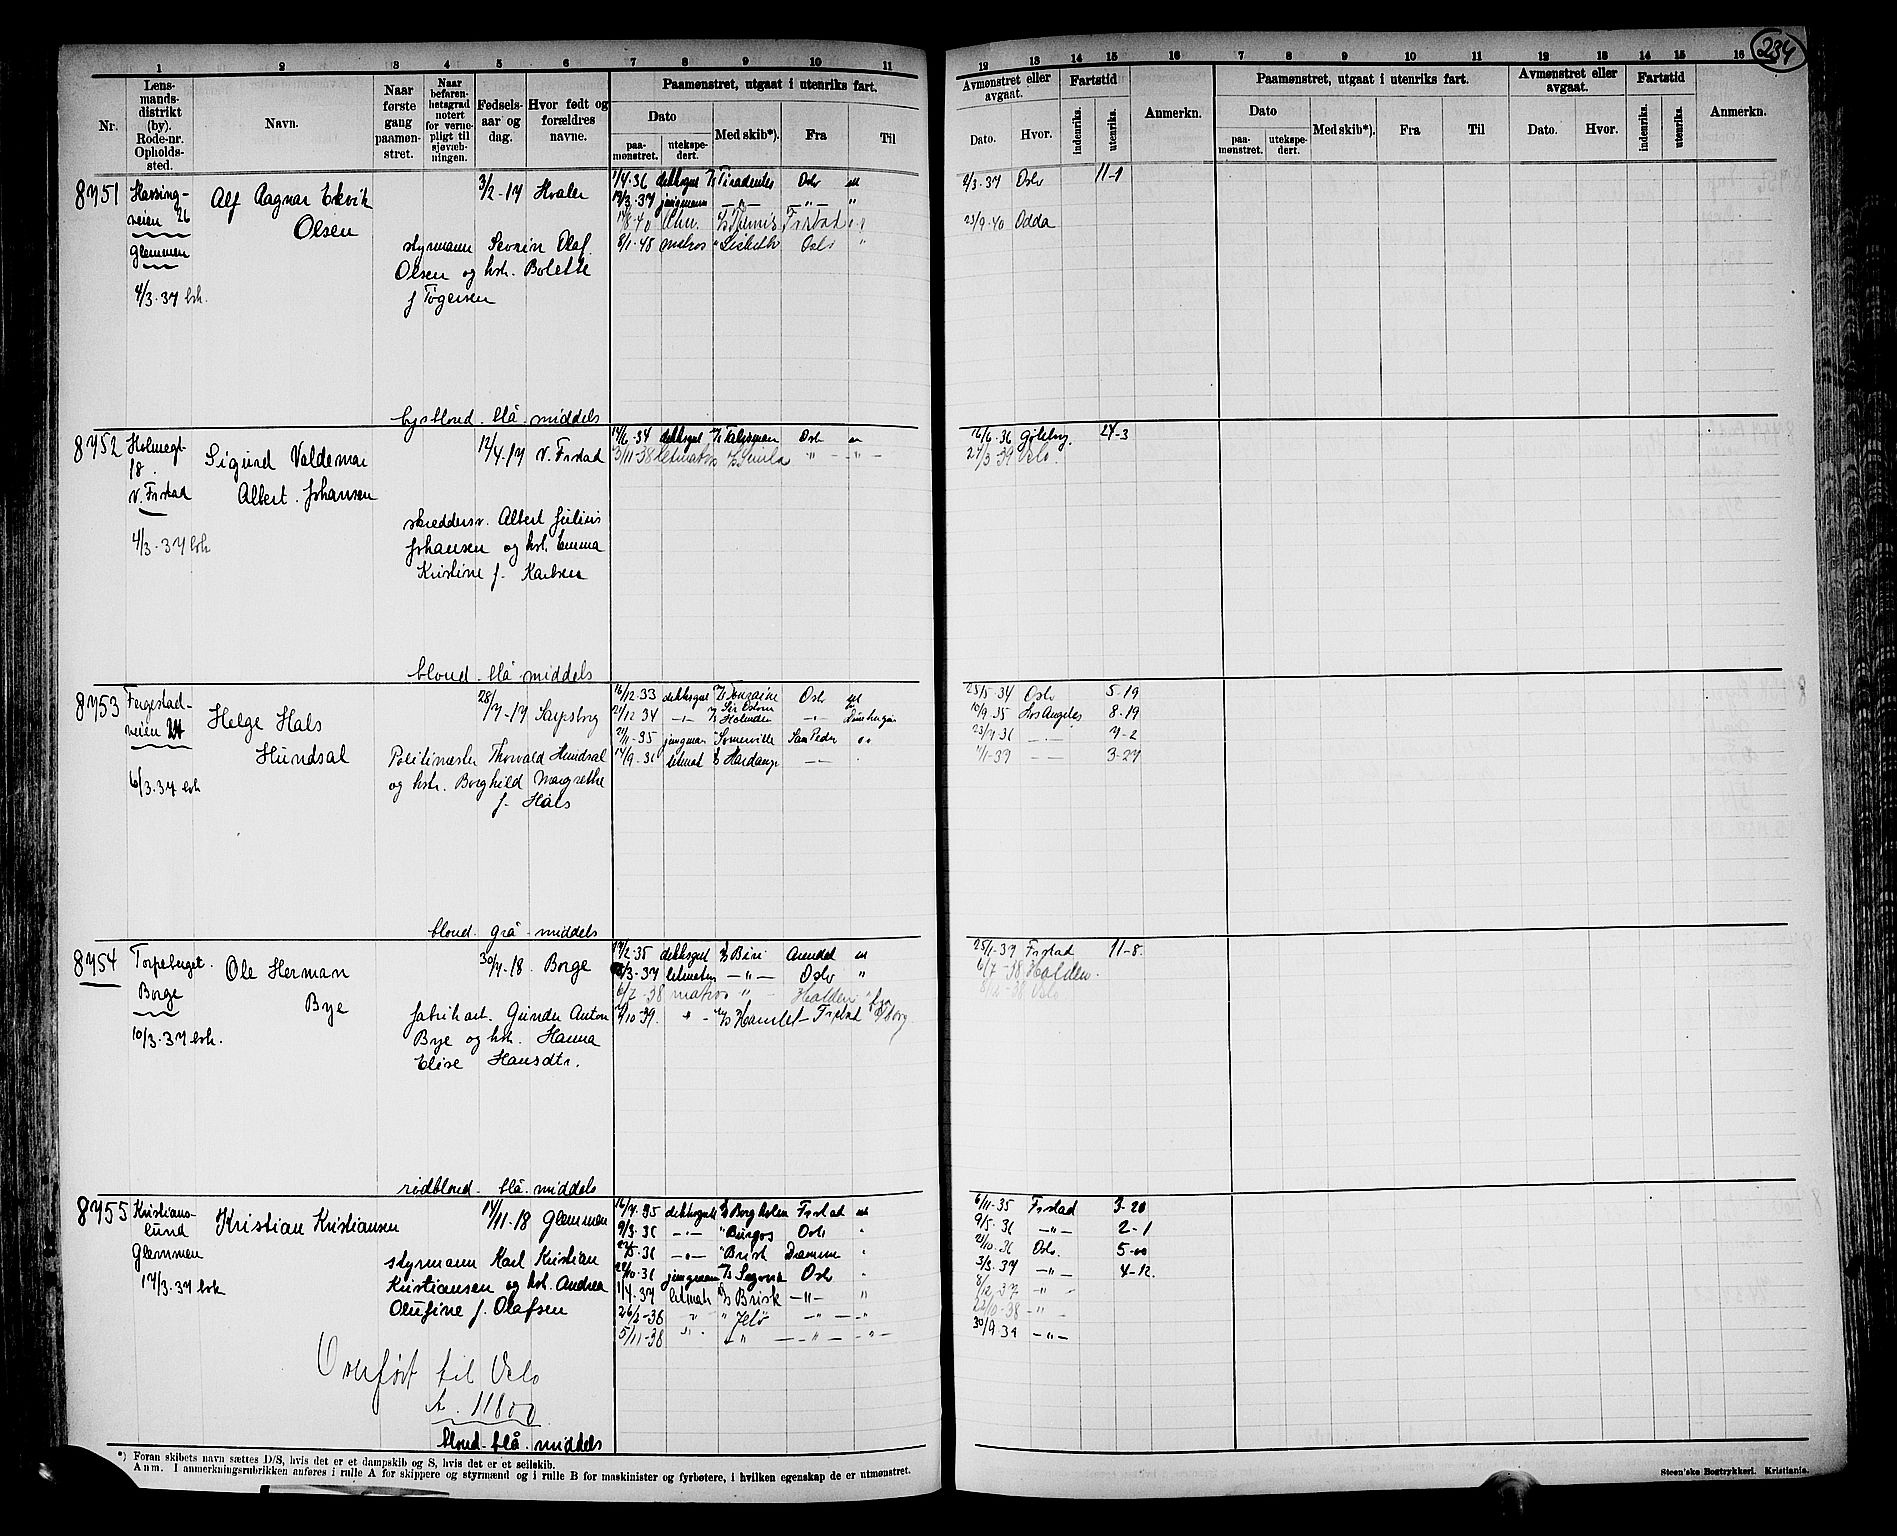 234
1 2 3 4 5 6 7 8 9 10 11
Nr.
Lensmandsdistrikt (by). Rode-nr. Opholdssted.
Navn.
Naar første gang paamønstret.
Naar befarenhetsgrad notert for vernepligt til sjøvæbningen.
Fødselsaar og dag.
Hvor født og forældres navne.
Paamønstret, utgaat i utenriks fart.
Dato
paamønstret. utekspedert.
Med skib*). Fra Til
12 13 14 15 16 7 8 9 10 11 12 13 14 15 16
Avmønstret eller avgaat. Fartstid
Dato. Hvor. indenriks. utenriks. Anmerkn.
Paamønstret, utgaat i utenriks fart.
Dato
paamønstret. utekspedert.
Med skib*). Fra Til
Avmønstret eller avgaat. Fartstid
Dato. Hvor. indenriks. utenriks. Anmerkn.
8751
veien 26
Glemmen
4/3-37
Alf Ragnar Ekvik
Olsen
3/2-17 Hvaler
styrmann Severin Olaf
Olsen og hstr. Bolette
f Tøgersen
lysblond. blå middels
1/4-36 dekksgut Tiradentes Oslo
jungmann
Frstad
8/1-48 matros Oslo
2/3-37 Oslo 11-1
23/9-40 Odda
8752
Holmegt
18
v. Frstad
4/3-37
Sigurd Valdemar
Albert Johansen
12/4-17 v. Frstad
skreddersv. Albert Julius
Johansen og hstr. Emma
Kristine f. Karlsen
blond. blå middels
14/6-34 dekksgut Talisman Oslo
3/11-38 letmatros
16/6-36 Gøteborg. 24-3
27/3-39 Oslo.
8753
6/3-37
Helge Hals
Hundsal
28/7-17 Sarpsborg
Politimester Thorvald Hundsal
og hstr. Borghild Margrethe
f. Hals
blond. grå middels
16/12-33 dekksgut Touraine Oslo
21/12 34
21/11-35 jungman Somerville San Pedro
17/9-36 letmat Hardanger
25/5-34 Oslo 5-19
10/9-35 Los Angeles 8-19
23/9 36 7-2
7/1-39 3-27
8754
Torpeberget.
Borge
10/3-37
Ole Herman
Bye
30/7-18 Borge
fabrikarb. Gunder Anton
Bye og hstr. Hanna
Elise Hansdtr.
rødblond. blå middels
dekksgut Biri Arendal
Oslo
6/7-38 matros Halden
Hamlet Frstad
25/1-37 Frstad 11-8
6/7-38 Halden
8/12-38 Oslo
8755
Kristianslund
Glemmen
17/3-37
Kristian Kristiansen
14/11-18 Glemmen
styrmann Karl Kristian
Kristiansen og hstr. Andrea
Olufine f. Olafsen
Overført til Oslo
A. 11800
blond blå middels
16/4-35 dekksgutt Borgholm Frstad
9/3-36 Burgos Oslo
Brisk Drammen
jungmann Segovia Oslo
1/4-37 letmatr Brisk
26/2-38 Jelø
5/11-38
6/11-35 Frstad 3-20
9/5-36 2-1
2/10-36 Oslo. 5-00
3/3-37 4-12
8/12-37
22/10-38
30/9 39
*) Foran skibets navn sættes D/S, hvis det er et dampskib og S, hvis det er et seilskib.
Anm. I anmerkningsrubrikken anføres i rulle A for skippere og styrmænd og i rulle B for maskinister og fyrbøtere, i hvilken egenskap de er utmønstret.
Steen'ske Bogtrykkeri. Kristiania.